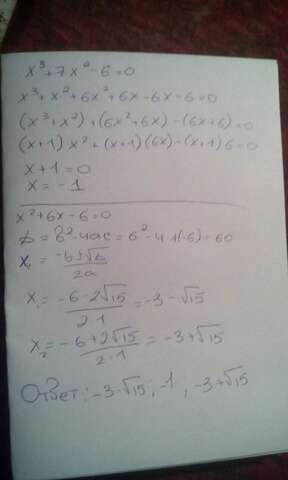 x³+7x²-6=0
x³+x²+6x²+6x-6x-6=0
(x³+x²)+(6x²+6x)-(6x+6)=0
(x+1)x²+(x+1)(6x)-(x+1)6=0
x+1=0
x=-1
x²+6x-6=0
D=b²-4ac=6²-4·1(-6)=60
x₁=-b±√D/2a
x₁=-6-2√15/2·1=-3-√15
x₂=-6+2√15/2·1=-3+√15
Ответ: -3-√15, -1; -3+√15